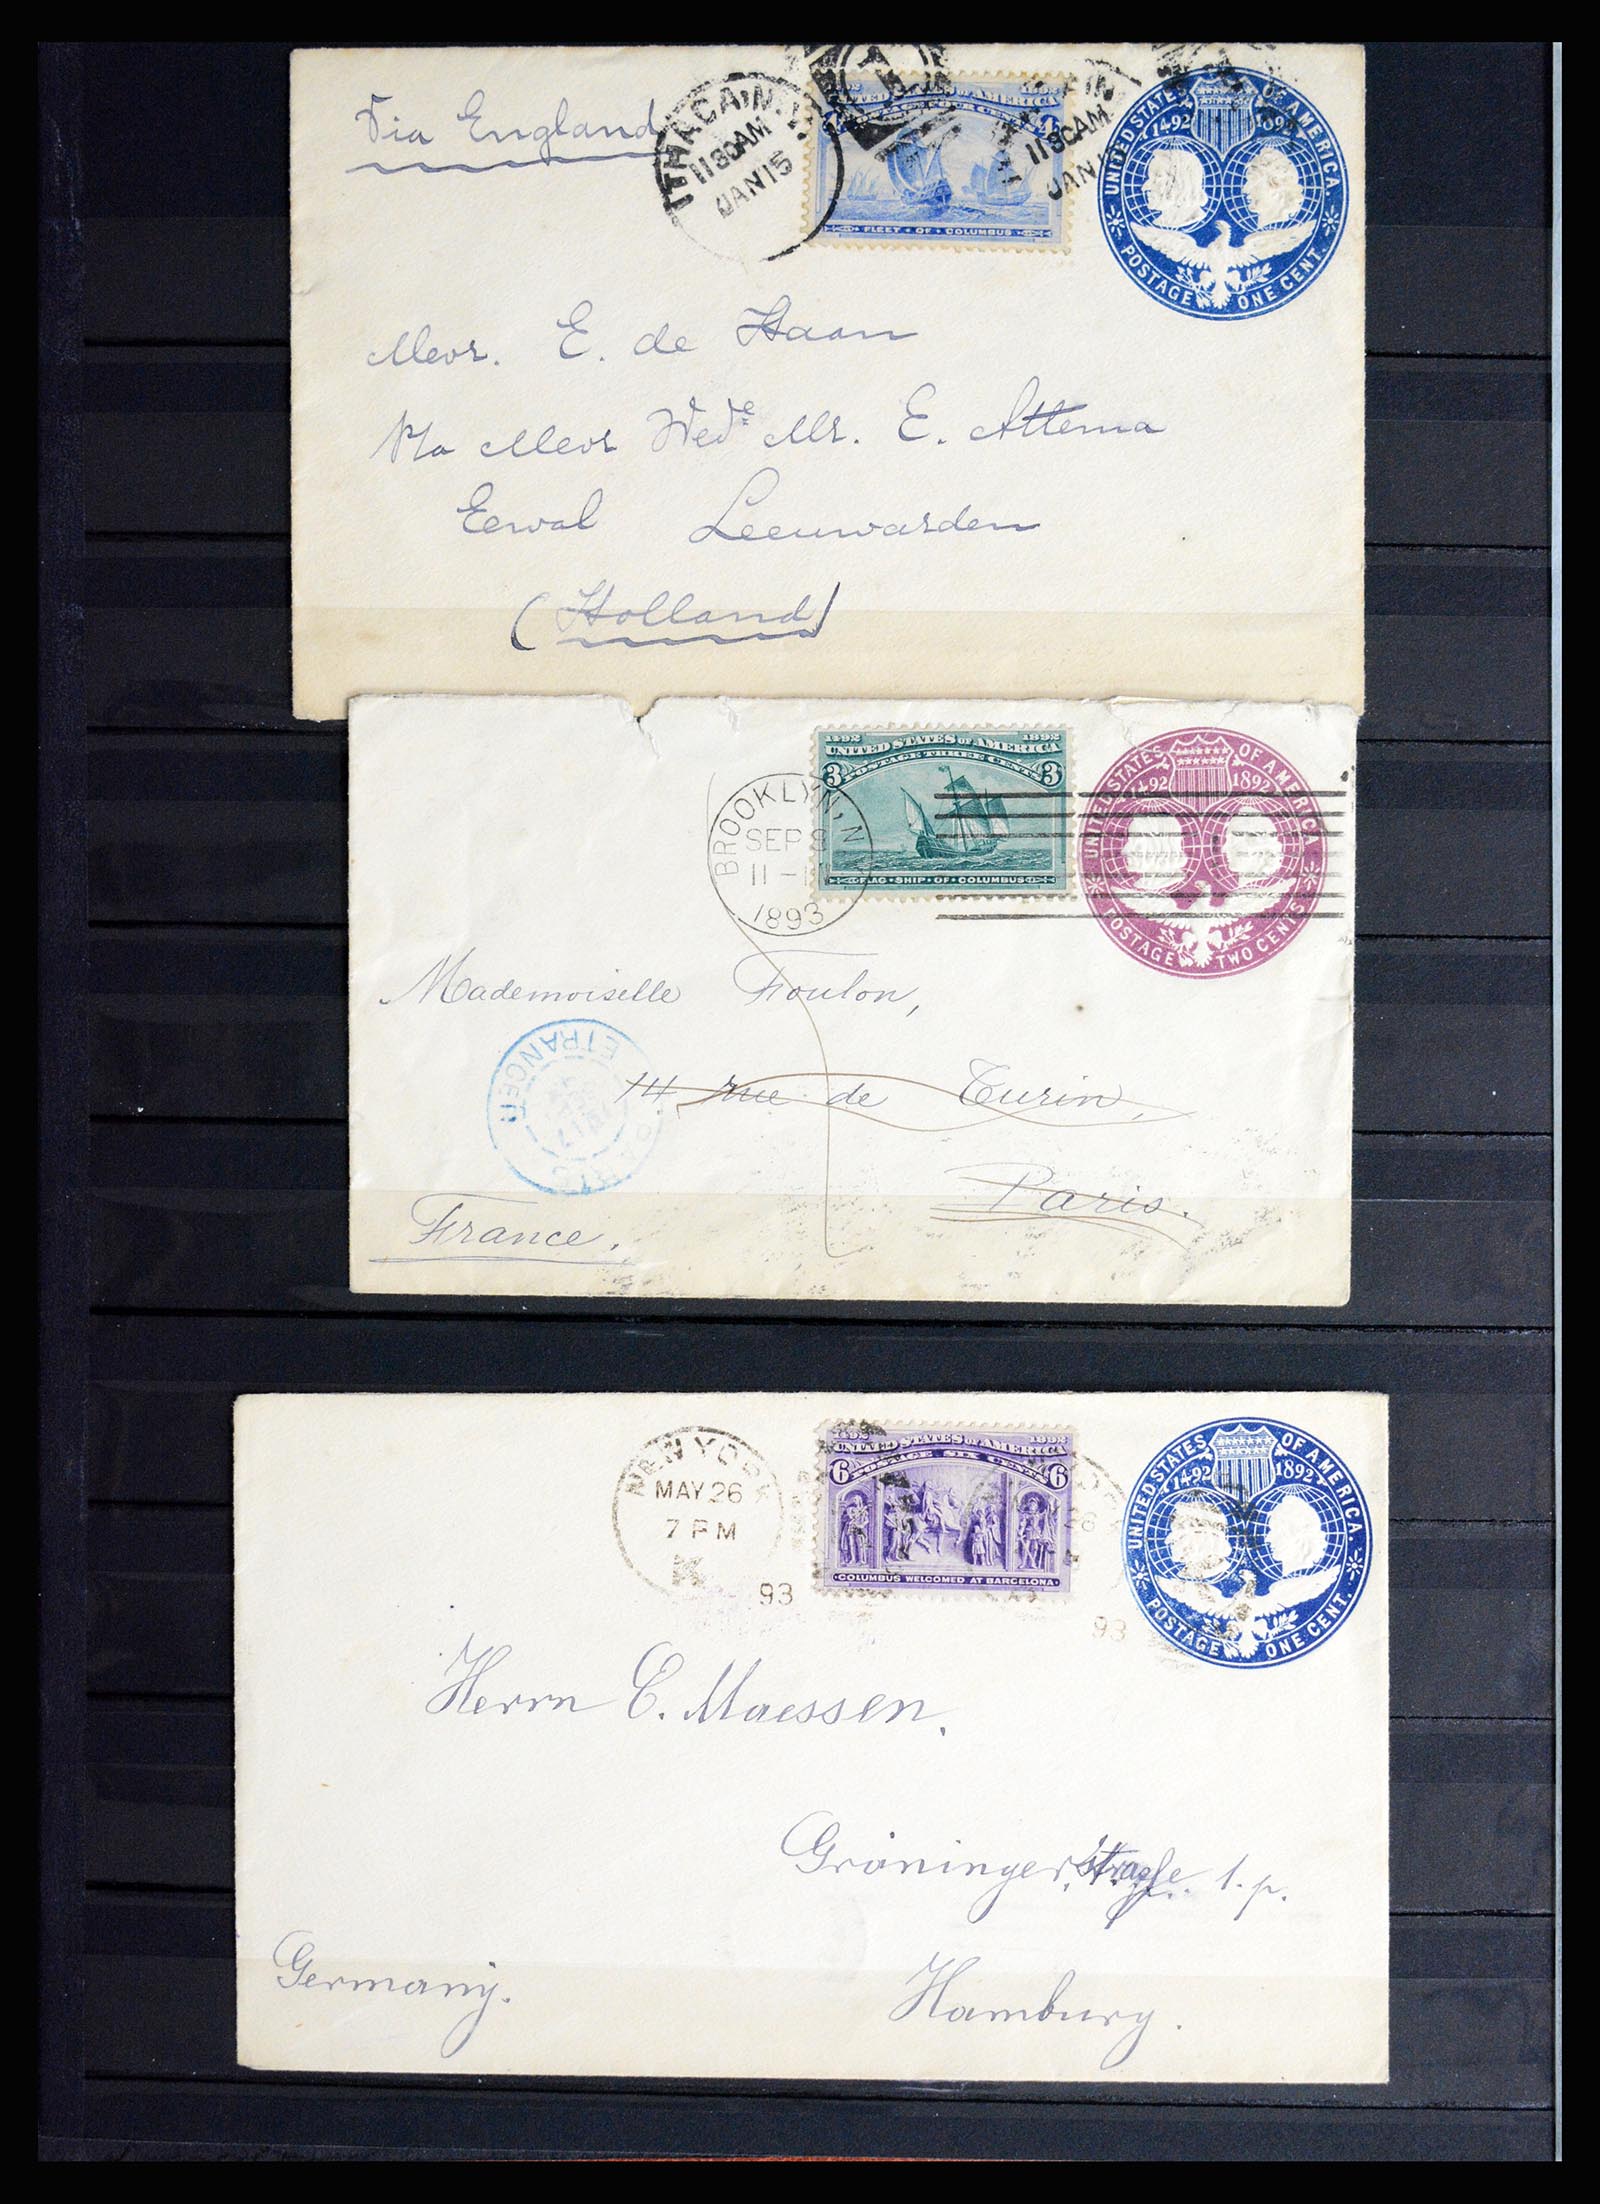 Via England
ITHACA, N.Y.
1130AM
JAN 15
UNITED STATES OF AMERICA
FLEET · OF · COLUMBUS
1130AM
JAN
UNITED STATES OF AMERICA.
1492 1892
POSTAGE ONE CENT.
Mevr. E. de Haan
Mevr Wed.e Mr. E. Attema
Eewal Leeuwarden
(Holland)
1492 1892
UNITED STATES OF AMERICA
POSTAGE THREE CENTS
3 3
FLAG · SHIP · OF · COLUMBUS
BROOKLYN, N
SEP 8
11 -
1893
UNITED STATES OF AMERICA
1492 1892
POSTAGE TWO CENTS.
Mademoiselle Foulon,
ETRANGER
14 rue de Turin,
Paris.
France.
NEW YORK
MAY 26
7 PM
K
93
892 1892
UNITED STATES OF AMERICA
POSTAGE SIX CENTS
6 6
COLUMBUS WELCOMED AT BARCELONA
93
UNITED STATES OF AMERICA.
1492 1892
POSTAGE ONE CENT.
Herrn C. Maessen.
Gröningerstraße 1. p.
Germany.
Hamburg.